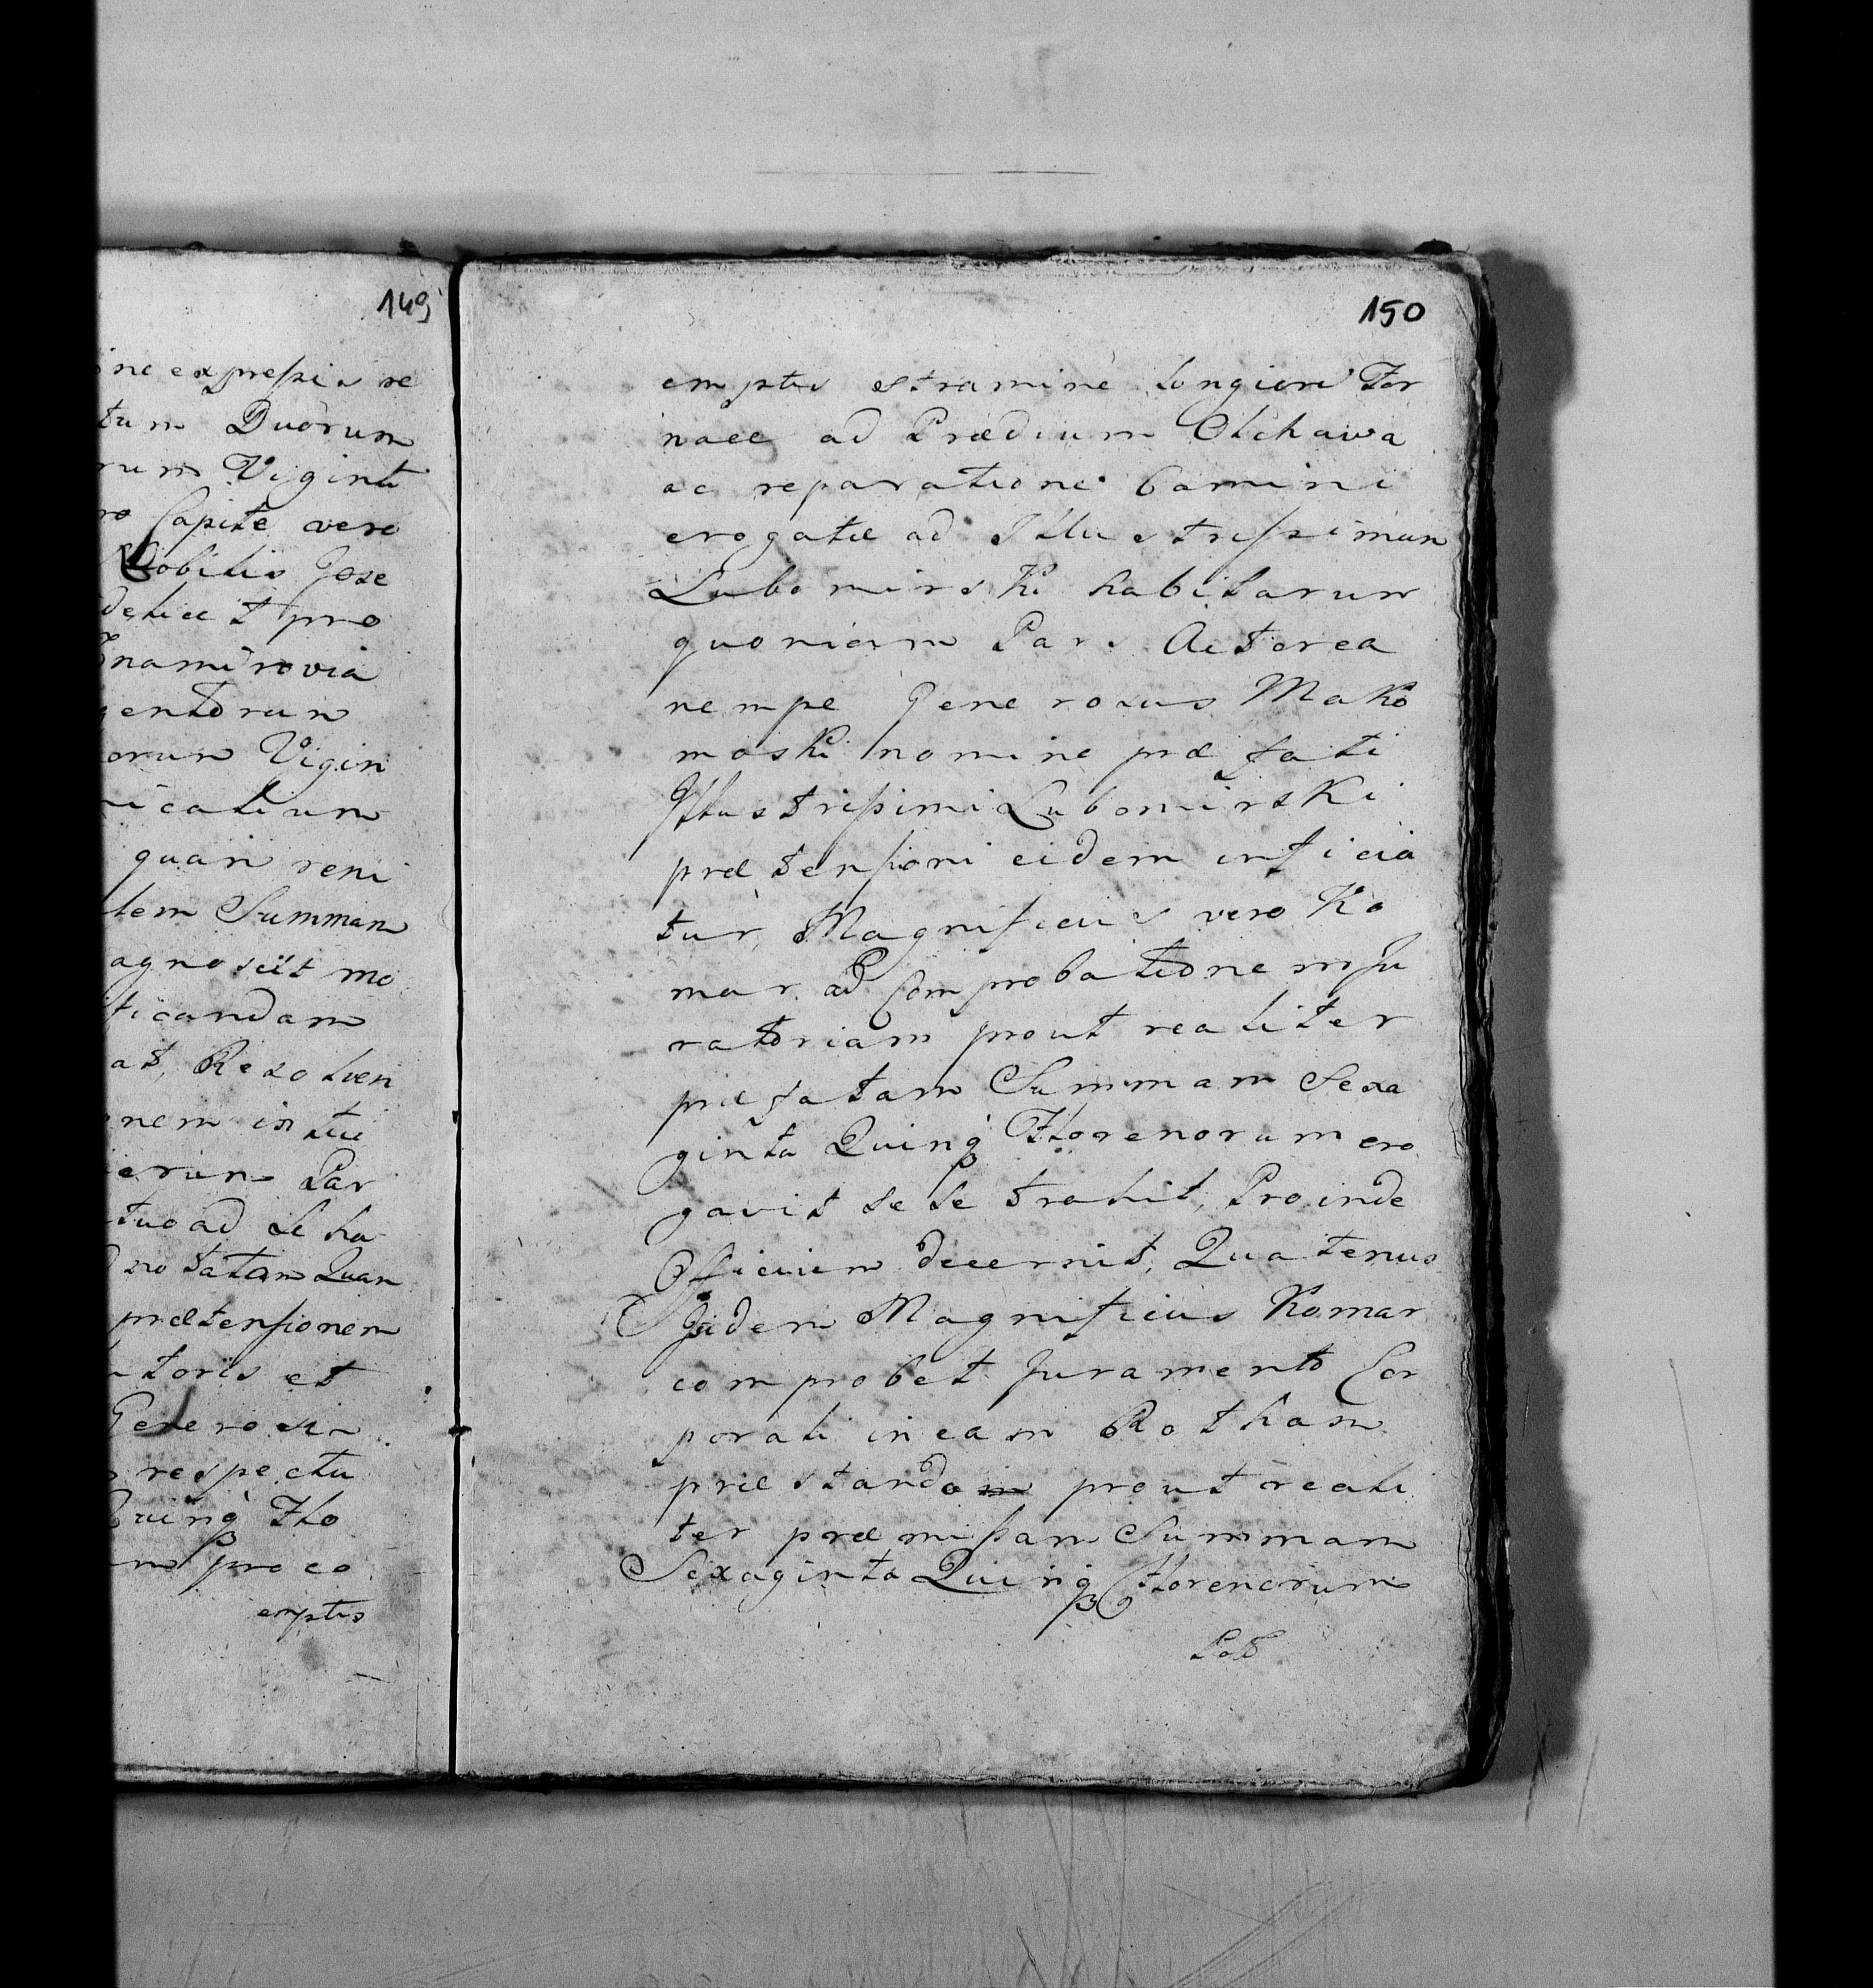 149
ne expressis re
tum Duorum
rum Viginti
ro Capite vero
Nobilis Jose
delicet pro
Znamirovia
gentorum
orum Vigin
nicatium
quam reni
tem Summam
agnoscit mo
ficandam
at, Resolven
nem in tui
erum Par
tuo ad se ha
notatam Quan
prætensionem
toris et
Generosi
respectu
Quinqꝫ Flo
m pro eo
emptis
150
emptis stramine longiori For
nace ad Prædium Olchawa
ac reparatione Camini
erogatæ ad Illustrissimum
Lubomirski habitarum
quoniam Pars Actorea
nempe Generosus Mako
moski nomine præfati
Illustrissimi Lubomirski
prætensioni eidem inficia
tur, Magnificus vero Ko
mar ad Comprobationem Ju
ratoriam prout realiter
præfatam Summam Sexa
ginta Quinqꝫ Florenorum ero
gavit sese trahit, Proinde
Officium decernit, Quatenus
Idem Magnificus Komar
comprobet Juramento Cor
porali in eam Rotham
præstando prout reali
ter præmissam Summam
Sexaginta Quinqꝫ Florenorum
Pol